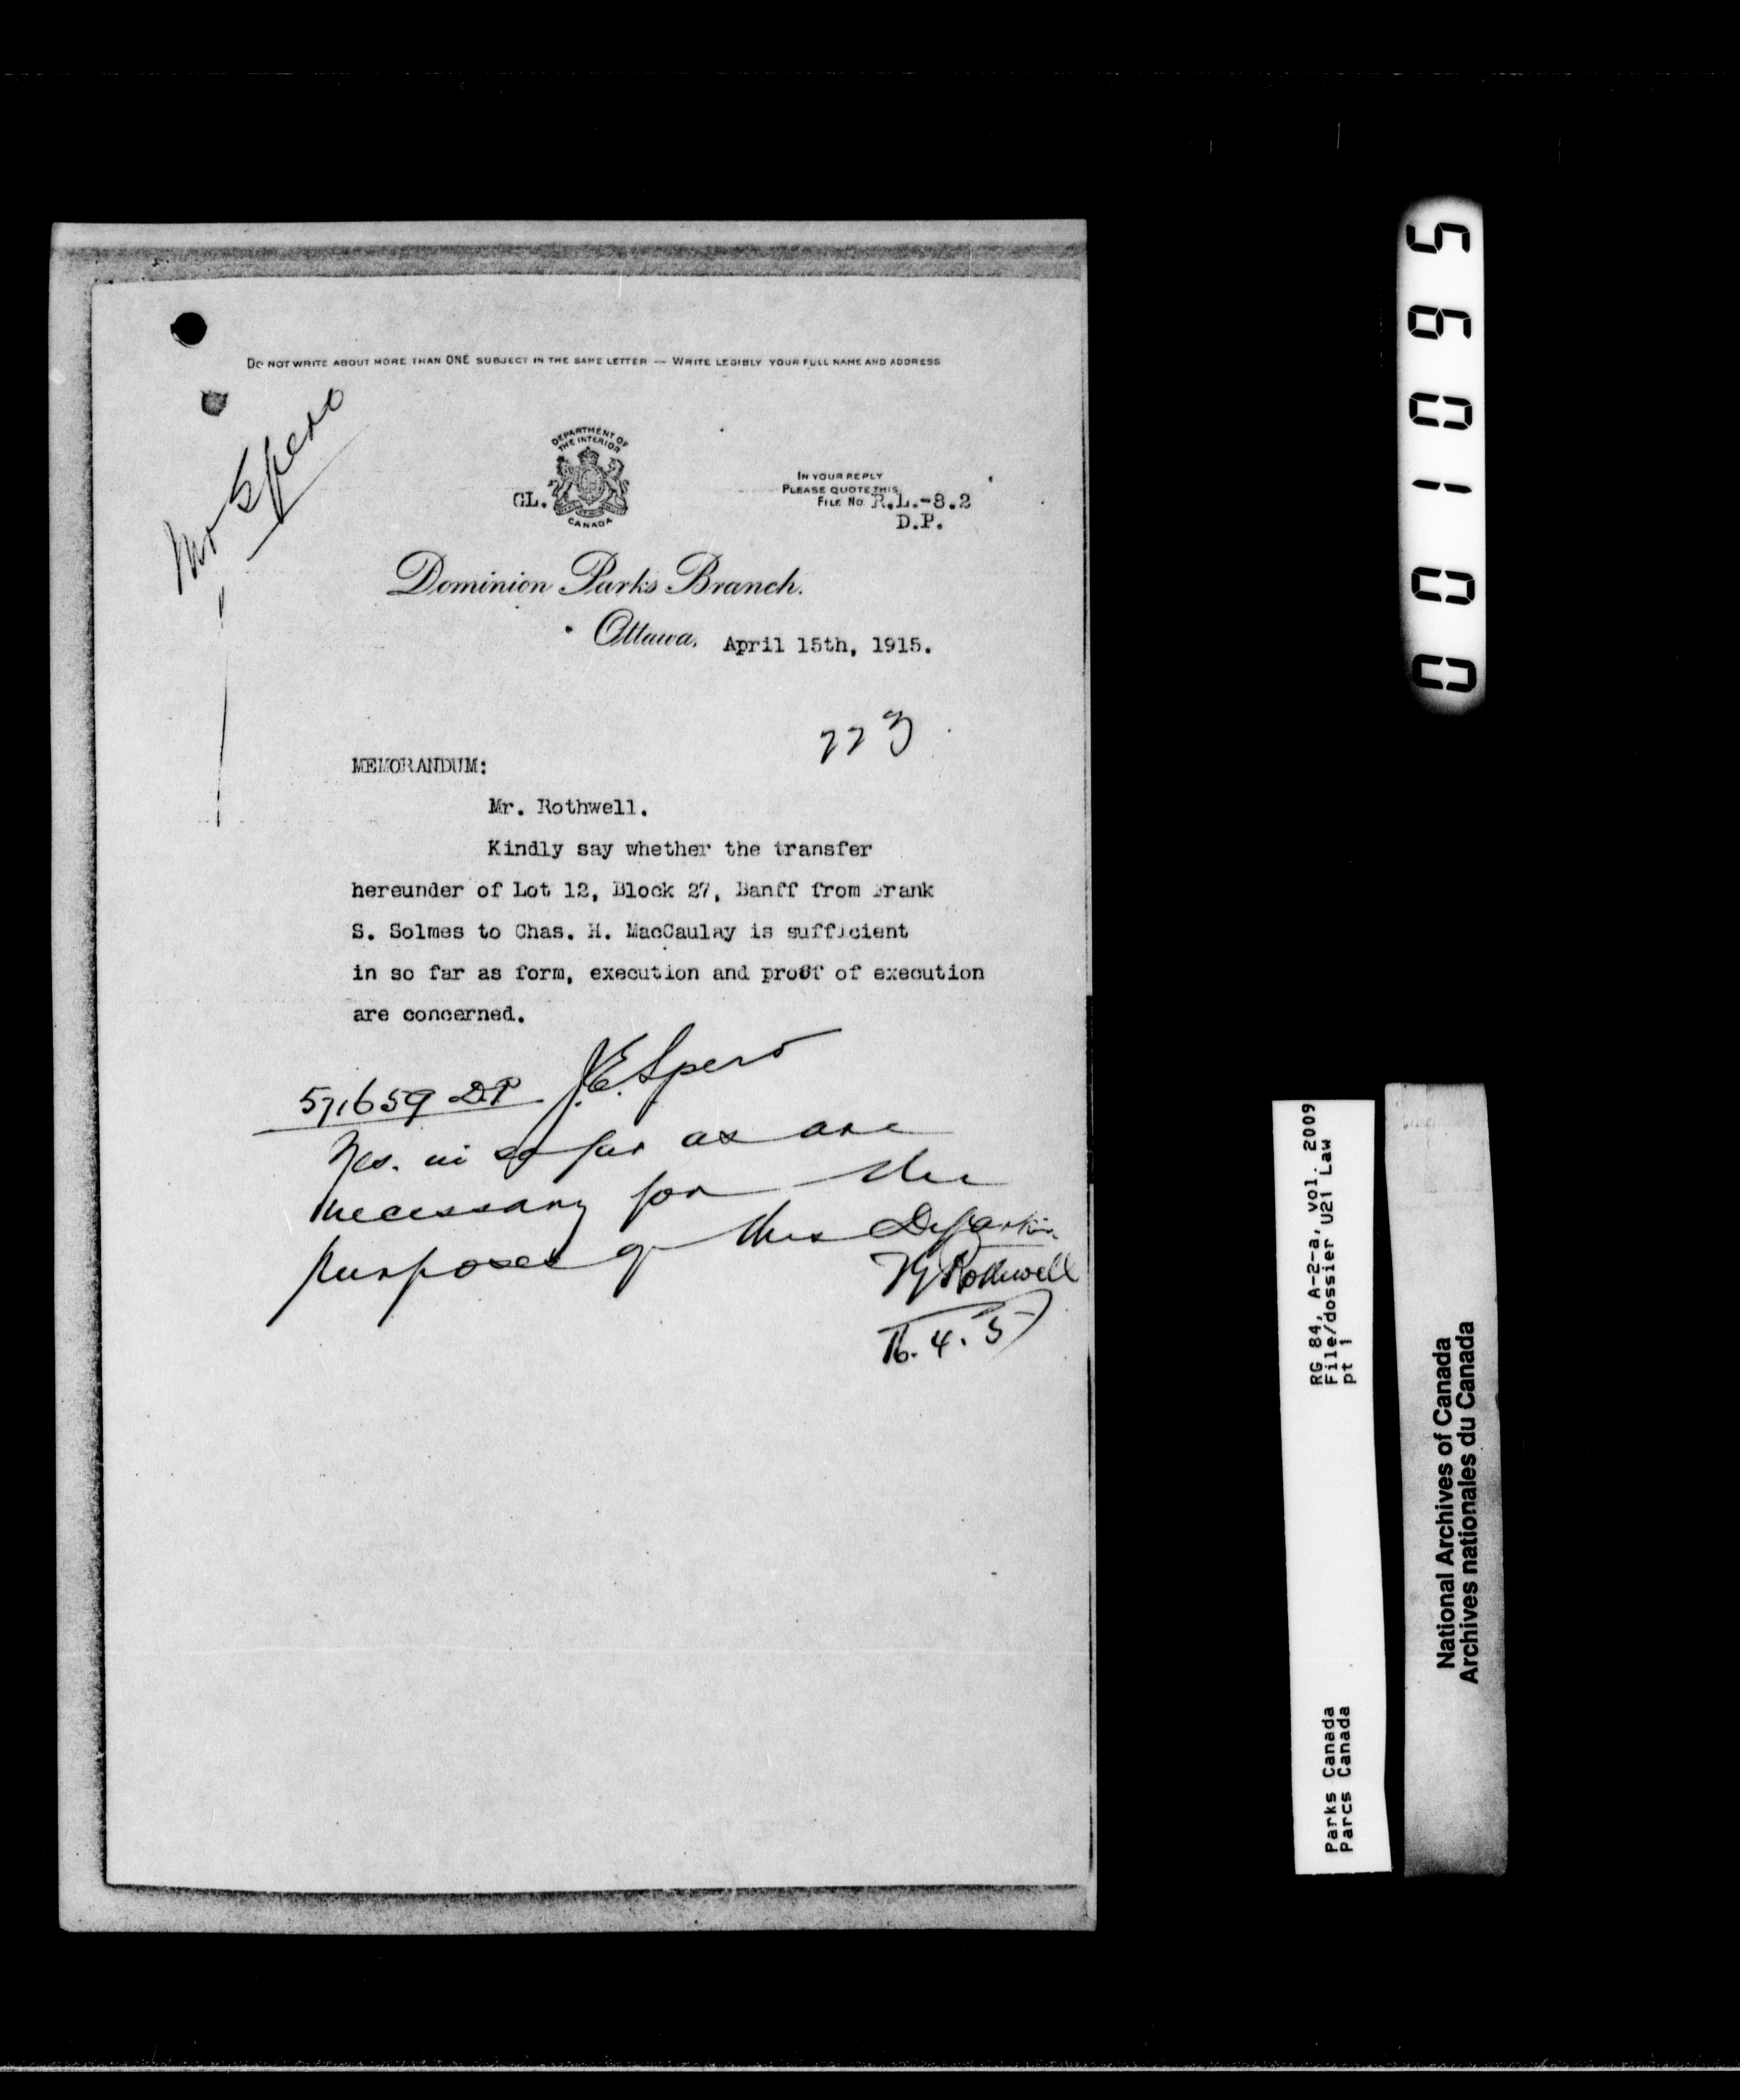 DO NOT WRITE ABOUT MORE THAN ONE SUBJECT IN THE SAME LETTER — WRITE LEGIBLY YOUR FULL NAME AND ADDRESS
Mr Spero
DEPARTMENT OF
THE INTERIOR
CANADA
GL.
IN YOUR REPLY
PLEASE QUOTE THIS
FILE No. R.L.-8.2
D.P.
Dominion Parks Branch.
Ottawa, April 15th, 1915.
223
MEMORANDUM:
Mr. Rothwell.
Kindly say whether the transfer
hereunder of Lot 12, Block 27, Banff from Frank
S. Solmes to Chas. H. MacCaulay is sufficient
in so far as form, execution and proof of execution
are concerned.
J.E. Spero
571659 D.P.
Yes. in so far as are
necessary for the
purposes of this
Rothwell
16.4.5
001095
RG 84, A-2-a, vol. 2009
File/dossier U21 Law
pt 1
Parks Canada
Parcs Canada
National Archives of Canada
Archives nationales du Canada